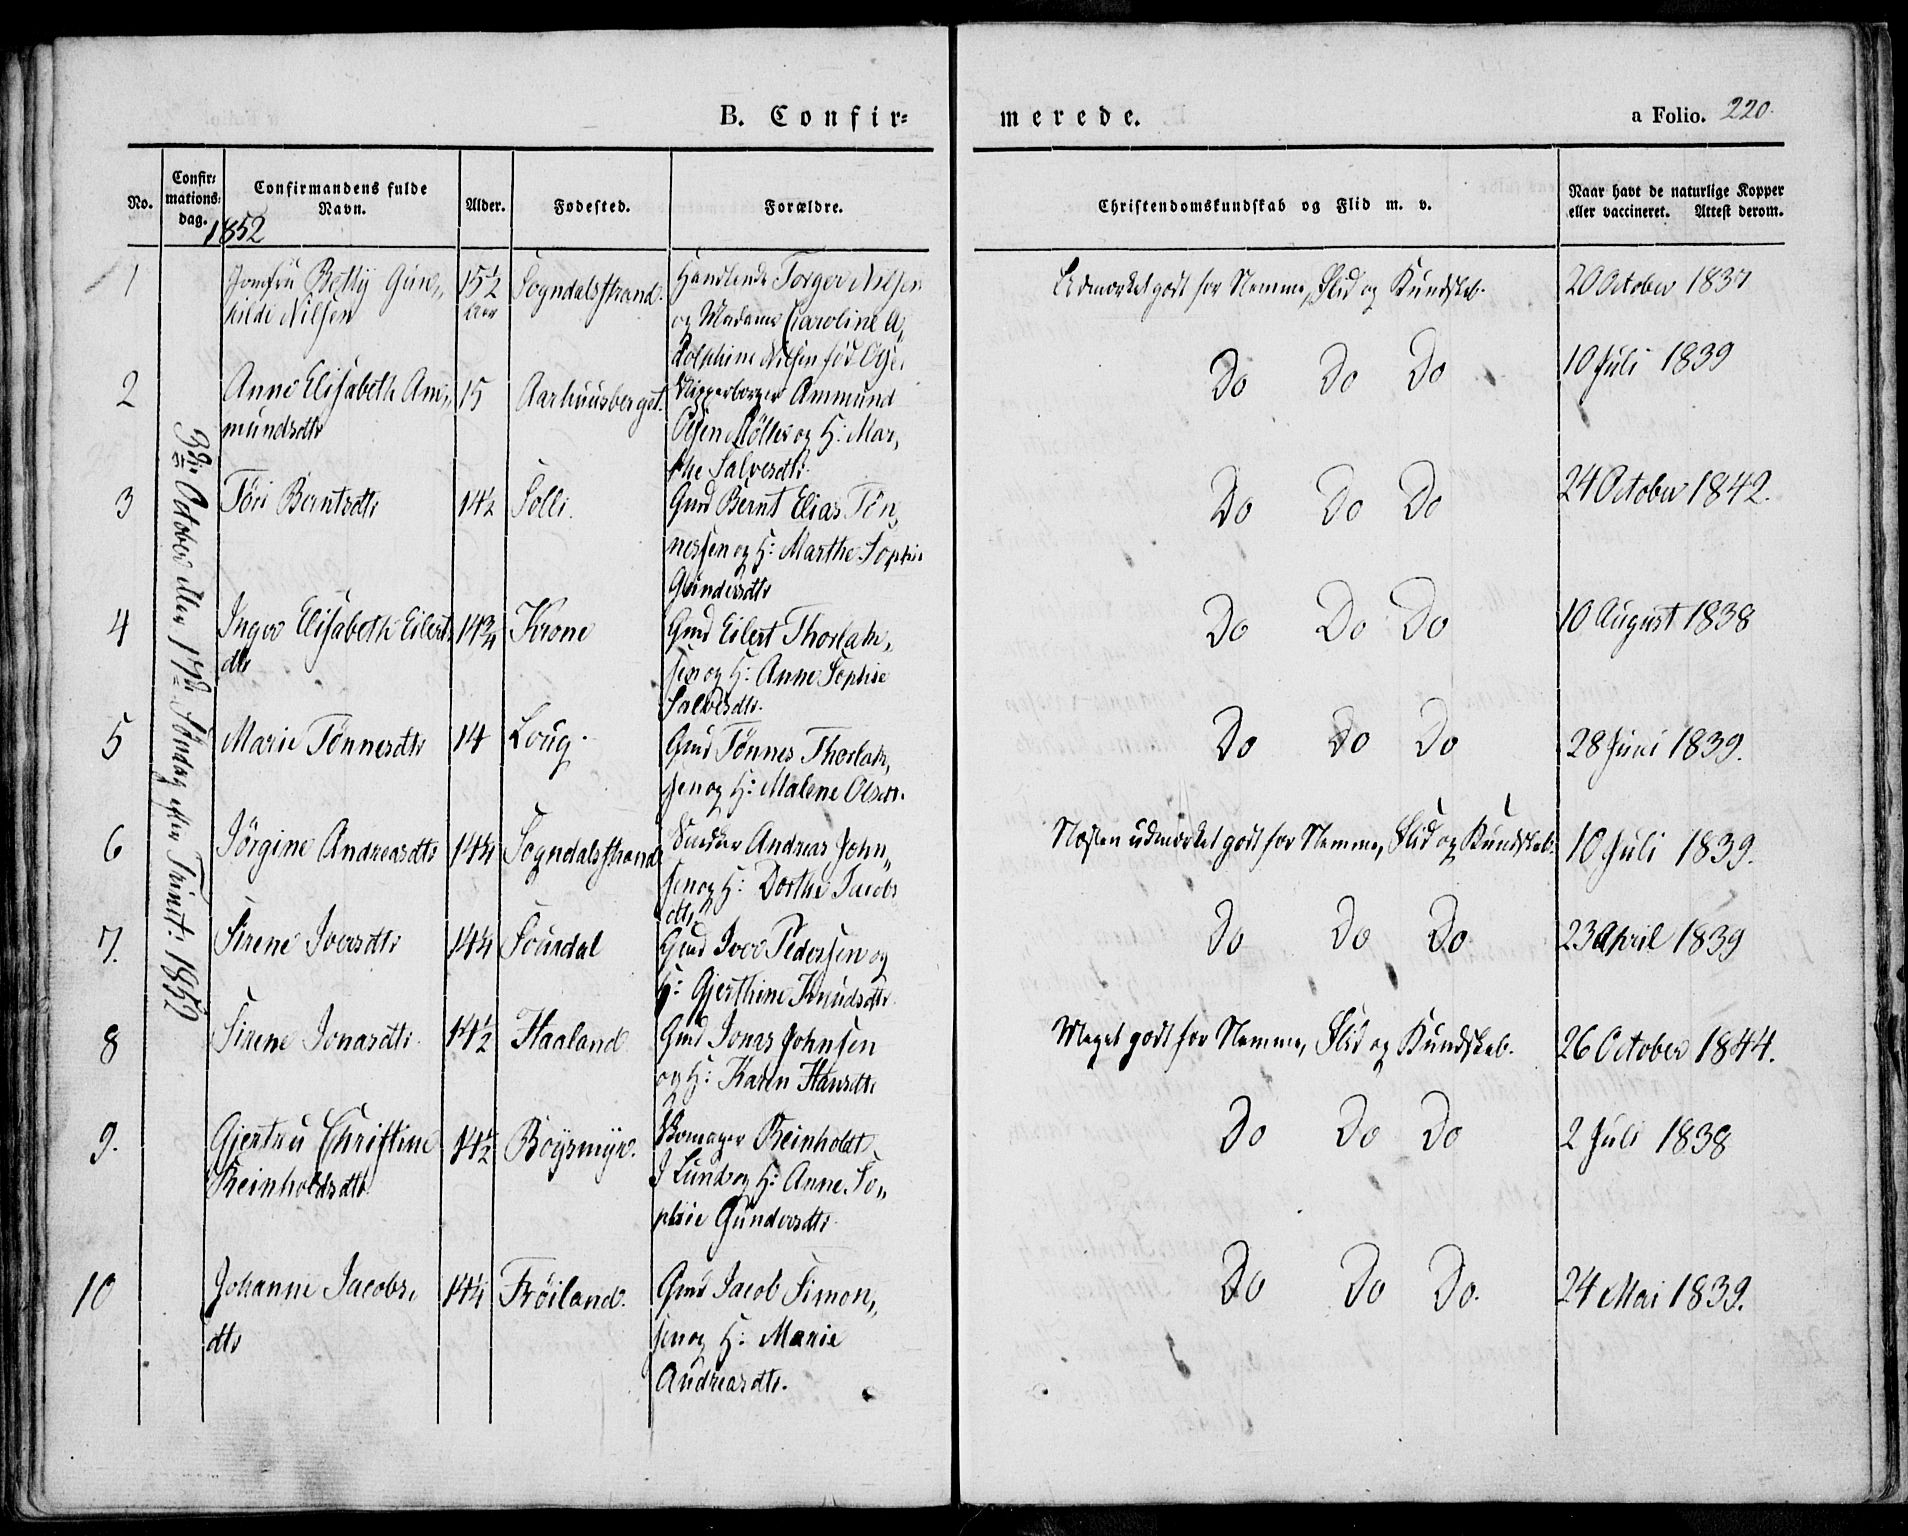 B. Confir=
merede.
a Folio. 220.
No.
Confir=
mations=
dag.
Confirmandens fulde
Navn.
Alder.
Fødested.
Forældre.
Christendomskundskab og Flid m. v.
Naar havt de naturlige Kopper
eller vaccineret. Attest derom.
1852
3die October eller 17de Søndag efter Trinit: 1852
1 Jomfru Betty Gun„ 15½ Sogndalsstrand. Handlende Torger Nilsen Udmærket godt for Nemme, Flid og Kundskab. 20 October 1837
hilde Nilsen Aar og Madame Caroline A„
dolphine Nilsen fød
2 Anne Elisabeth Am„ 15 Aarhuusberget. Skipperborger Ammund Do Do Do 10 Juli 1839
mundsdtr Olsen Møller og H: Mar„
the Salvesdtr.
3 Töri Berntsdtr 14½ Solli. Gmd Bernt Elias Tøn„ Do Do Do 24 October 1842.
nessen og H: Marthe Sophie
Gundersdtr
4 Inger Elisabeth Eilerts 14¾ Krone Gmd Eilert Thorlak„ Do Do Do 10 August 1838
dtr sen og H: Anne Sophie
Salvesdtr.
5 Marie Tønnesdtr 14 Loug. Gmd Tønnes Thorlak„ Do Do Do 28 Juni 1839.
sen og H: Malene Olsen.
6 Jörgine Andreasdtr 14¼ Sogndalsstrand Snedker Andreas John„ Næsten udmærket godt for Nemme, Flid og Kundskab. 10 Juli 1839.
sen og H: Dorthe Jacobs
dtr
7. Sirene Iversdtr 14¼ Soursdal Gmd Iver Pedersen og Do Do Do 23 April 1839
H: Gjerthine Knudsdtr.
8 Sirene Jonasdtr. 14½ Haaland Gmd Jonas Johnsen Meget godt for Nemme, Flid og Kundskab. 26 October 1844.
og H: Karen Hansdtr
9. Gjertru Christine 14½ Bøysmyr. Skomager Reinholdt Do Do Do 2 Juli 1838
Reinholdsdtr J Lund og H: Anne So„
phie Gundersdtr.
10 Johanne Jacobs„ 14¼ Frøiland. Gmd Jacob Simon„ Do Do Do. 24 Mai 1839.
dtr sen og H: Marie
Andreasdtr.